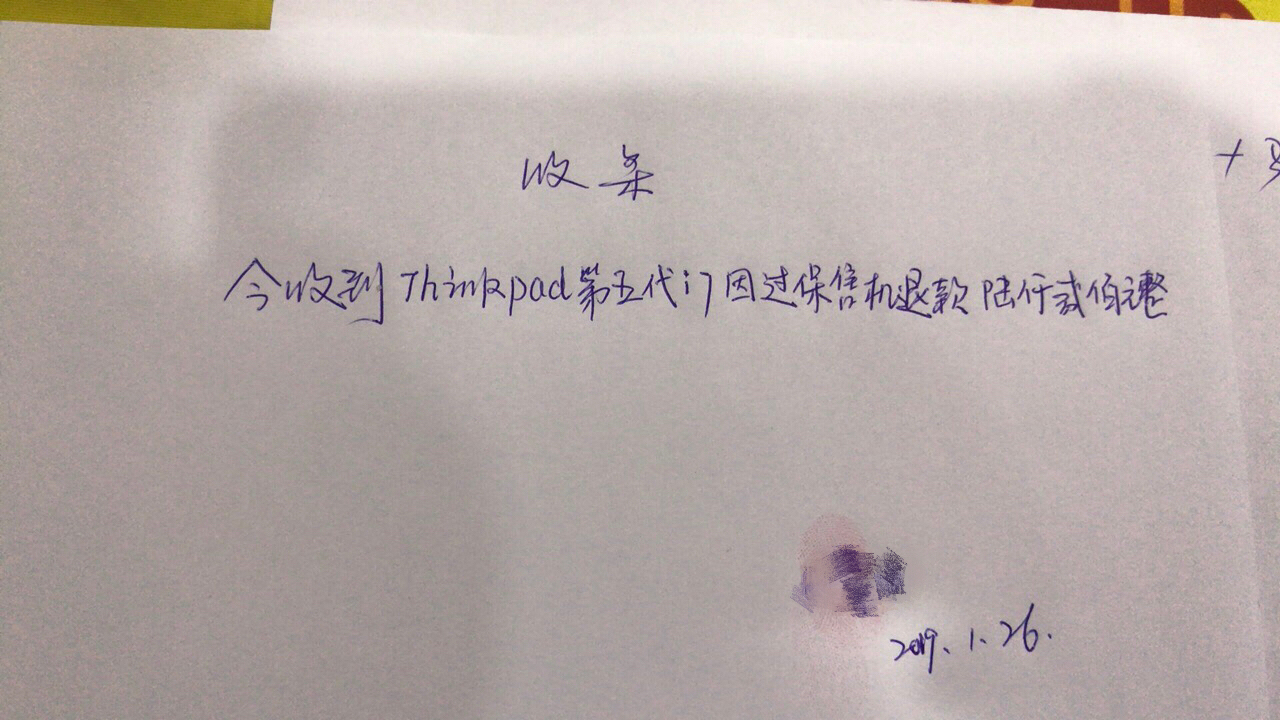 收条
今收到Thinkpad第五代i7因过保售机退款陆仟贰佰元整
2019.1.26.